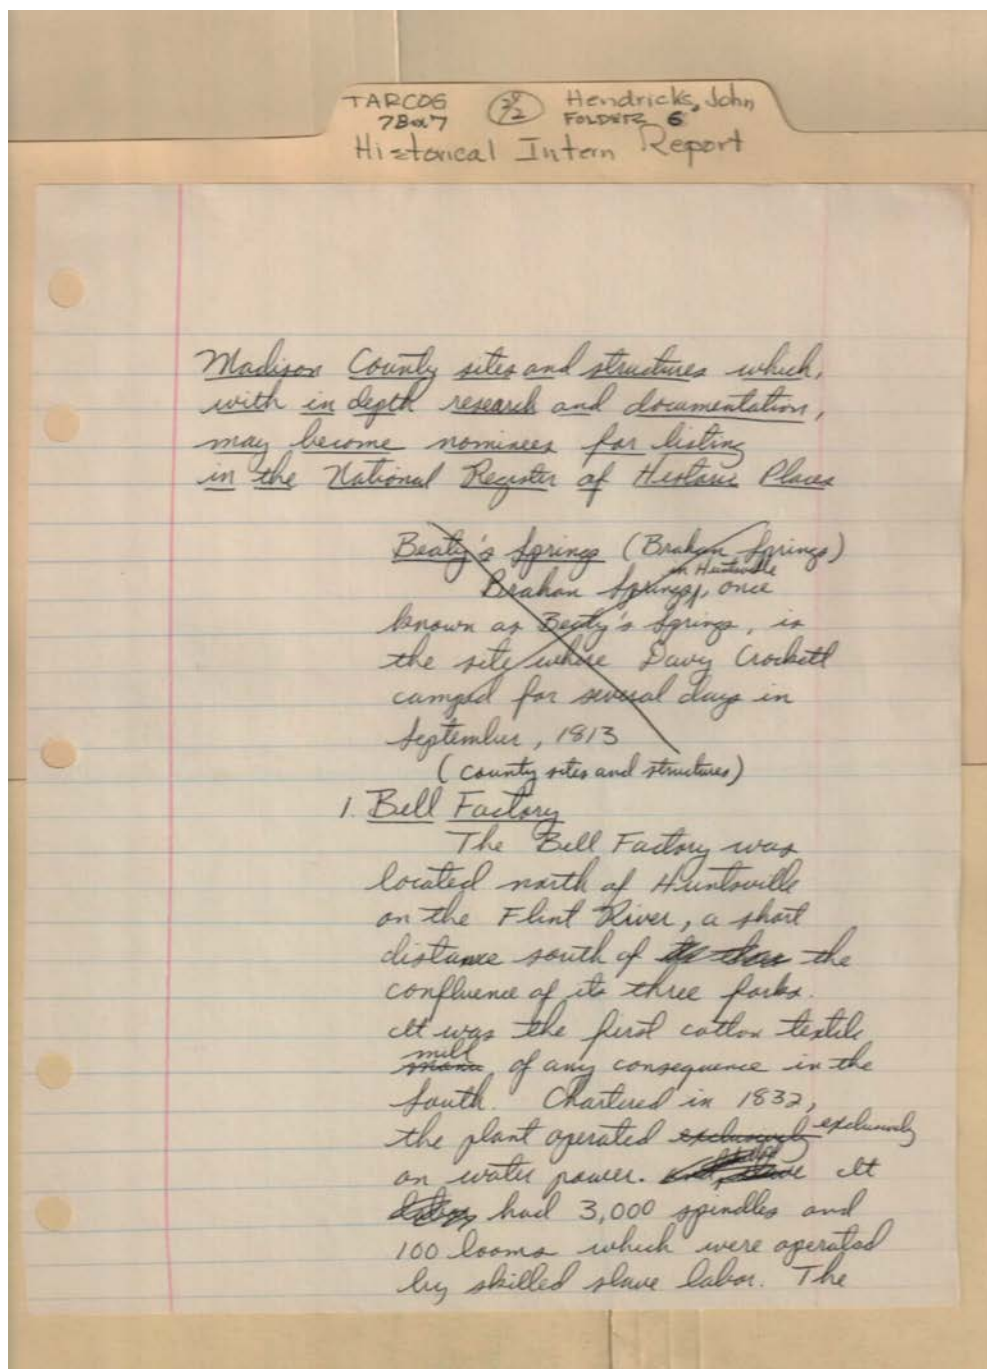 TARCOG
Hendricks, John
FOLDER 6
Historical Intern Report
Madison County sites and structures which,
with in depth research and documentation,
may become nominees for listing
in the National Register of Historic Places
Beaty's Springs (Brahan Springs)
in Huntsville
Brahan Springs, once
known as Beaty's Springs, is
the site where Davy Crockett
camped for several days in
September, 1813
(county sites and structures)
1. Bell Factory
The Bell Factory was
located north of Huntsville
on the Flint River, a short
distance south of the
confluence of its three forks.
It was the first cotton textile
mill
of any consequence in the
South. Chartered in 1832,
the plant operated exclusively exclusively
on water power. It
labor had 3,000 spindles and
100 looms which were operated
by skilled slave labor. The